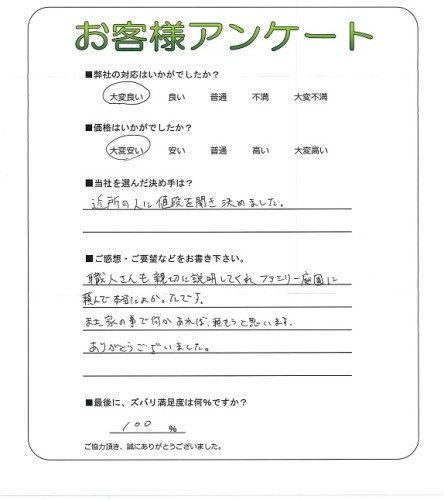 お客様アンケート
■弊社の対応はいかがでしたか？
大変良い 良い 普通 不満 大変不満
■価格はいかがでしたか？
大変安い 安い 普通 高い 大変高い
■当社を選んだ決め手は？
近所の人に値段を聞き決めました。
■ご感想・ご要望などをお書き下さい。
職人さんも親切に説明してくれファミリー庭園に
頼んで本当によかったです。
また家の事で何かあれば、頼もうと思います。
ありがとうございました。
■最後に、ズバリ満足度は何％ですか？
100 ％
ご協力頂き、誠にありがとうございました。